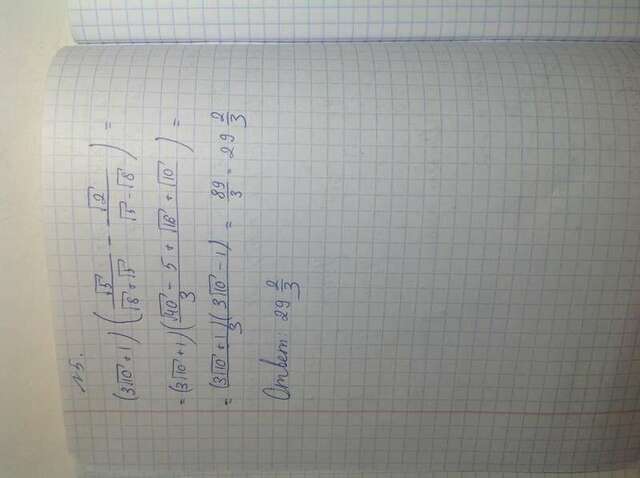 №5.
(3√10 + 1)(√5/(√8 + √5) - √2/(√5 - √8)) =
= (3√10 + 1)(√40 - 5 + √16 + √10)/3 =
= (3√10 + 1)(3√10 - 1)/3 = 89/3 = 29 2/3
Ответ: 29 2/3